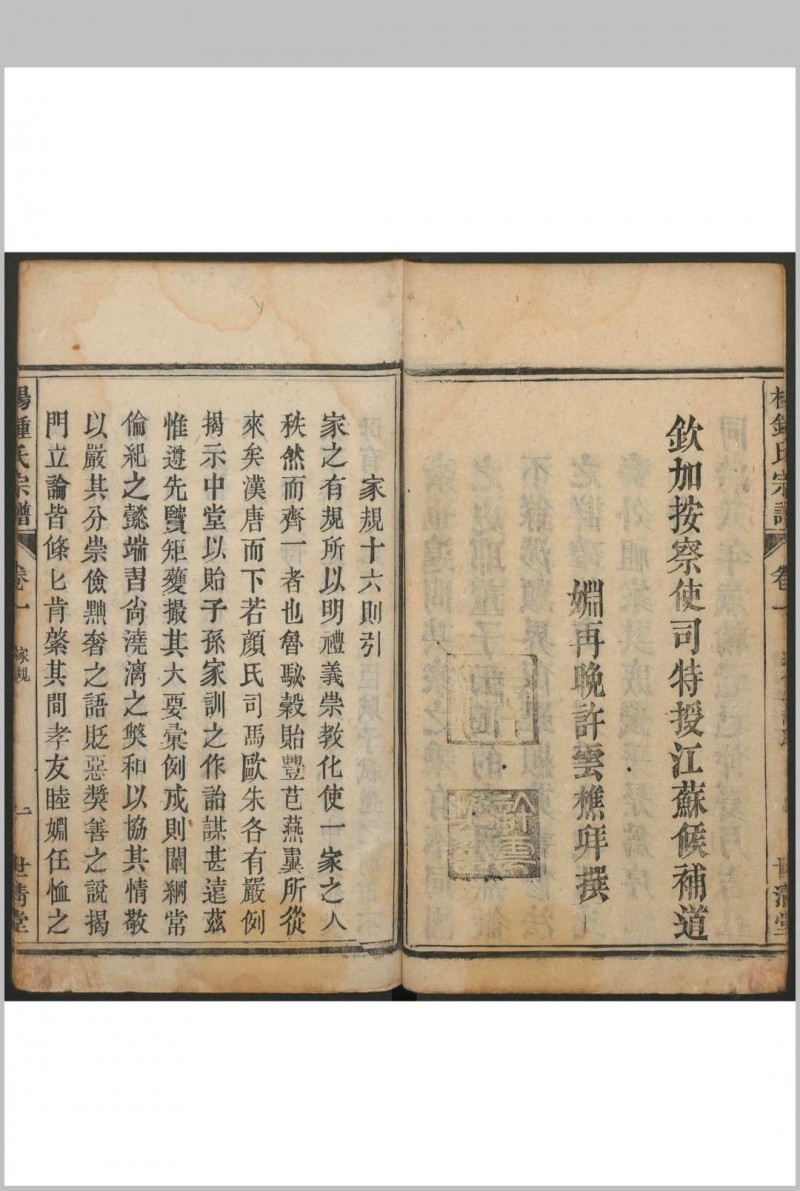 欽加按察使司特授江蘇候補道
姻再晚許雲樵拜撰
家規十六則引
家之有規所以明禮義崇教化使一家之人
秩然而齊一者也魯駜穀貽豐芑燕翼所從
來矣漢唐而下若顏氏司馬歐朱各有嚴例
揭示中堂以貽子孫家訓之作詒謀甚遠茲
惟遵先矩蒦撮其大要彙例成則闡綱常
倫紀之懿端習尙澆漓之獘和以協其情敬
以嚴其分崇儉黜奢之語貶惡奬善之說揭
門立論皆條匕肯綮其間孝友睦婣任恤之
楊鍾氏宗譜
卷一
家規
一
世清堂